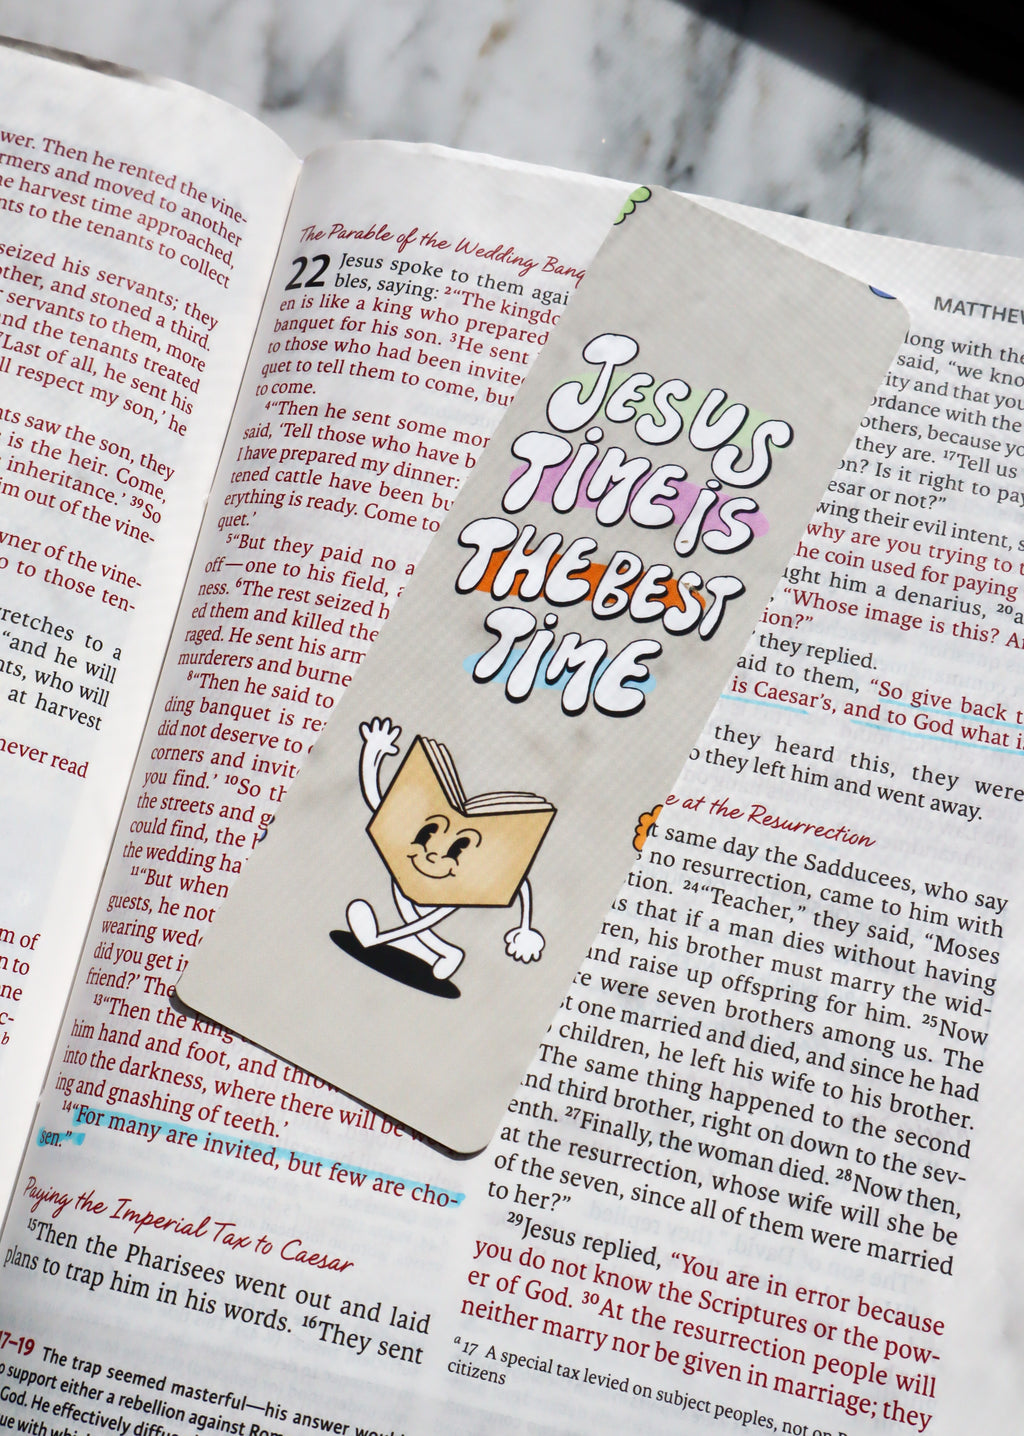 wer. Then he rented the vine-
rmers and moved to another
harvest time approached,
nts to the tenants to collect
seized his servants; they
other, and stoned a third.
servants to them, more
nd the tenants treated
Last of all, he sent his
ll respect my son,’ he
nts saw the son, they
is the heir. Come,
inheritance.’ 39So
im out of the vine-
wner of the vine-
o to those ten-
retches to a
“and he will
nts, who will
at harvest
never read
m of
n to
one
c-
b
The Parable of the Wedding Banq
22 Jesus spoke to them agai
bles, saying: 2“The kingdo
en is like a king who prepared
banquet for his son. 3He sent
to those who had been invite
quet to tell them to come, bu
to come.
4“Then he sent some mor
said, ‘Tell those who have b
I have prepared my dinner:
tened cattle have been bu
erything is ready. Come to
quet.’
5“But they paid no a
off—one to his field,
ness. 6The rest seized h
ed them and killed the
raged. He sent his arm
murderers and burne
8“Then he said to
ding banquet is rea
did not deserve to
corners and invit
you find.’ 10So th
the streets and g
could find, the
the wedding ha
11“But when
guests, he not
wearing wed
did you get i
friend?’ The
13“Then the king
him hand and foot, and throw
into the darkness, where there will be w
ing and gnashing of teeth.’
14“For many are invited, but few are cho-
sen.”
Paying the Imperial Tax to Caesar
15Then the Pharisees went out and laid
plans to trap him in his words. 16They sent
17–19 The trap seemed masterful—his answer would
o support either a rebellion against Rom
God. He effectively diffus
ue with whic
JESUS
TIME IS
THE BEST
TIME
MATTHEW
long with the
said, “we kno
ity and that you
ordance with the
others, because yo
they are. 17Tell us
on? Is it right to pay
esar or not?”
wing their evil intent, s
why are you trying to t
he coin used for paying
ught him a denarius, 20a
“Whose image is this? A
ion?”
they replied.
aid to them, “So give back t
is Caesar’s, and to God what is
they heard this, they were
o they left him and went away.
e at the Resurrection
t same day the Sadducees, who say
no resurrection, came to him with
tion. 24“Teacher,” they said, “Moses
s that if a man dies without having
ren, his brother must marry the wid-
and raise up offspring for him. 25Now
re were seven brothers among us. The
st one married and died, and since he had
children, he left his wife to his brother.
The same thing happened to the second
nd third brother, right on down to the sev-
enth. 27Finally, the woman died. 28Now then,
at the resurrection, whose wife will she be
of the seven, since all of them were married
to her?”
29Jesus replied, “You are in error because
you do not know the Scriptures or the pow-
er of God. 30At the resurrection people will
neither marry nor be given in marriage; they
a 17 A special tax levied on subject peoples, not on
citizens